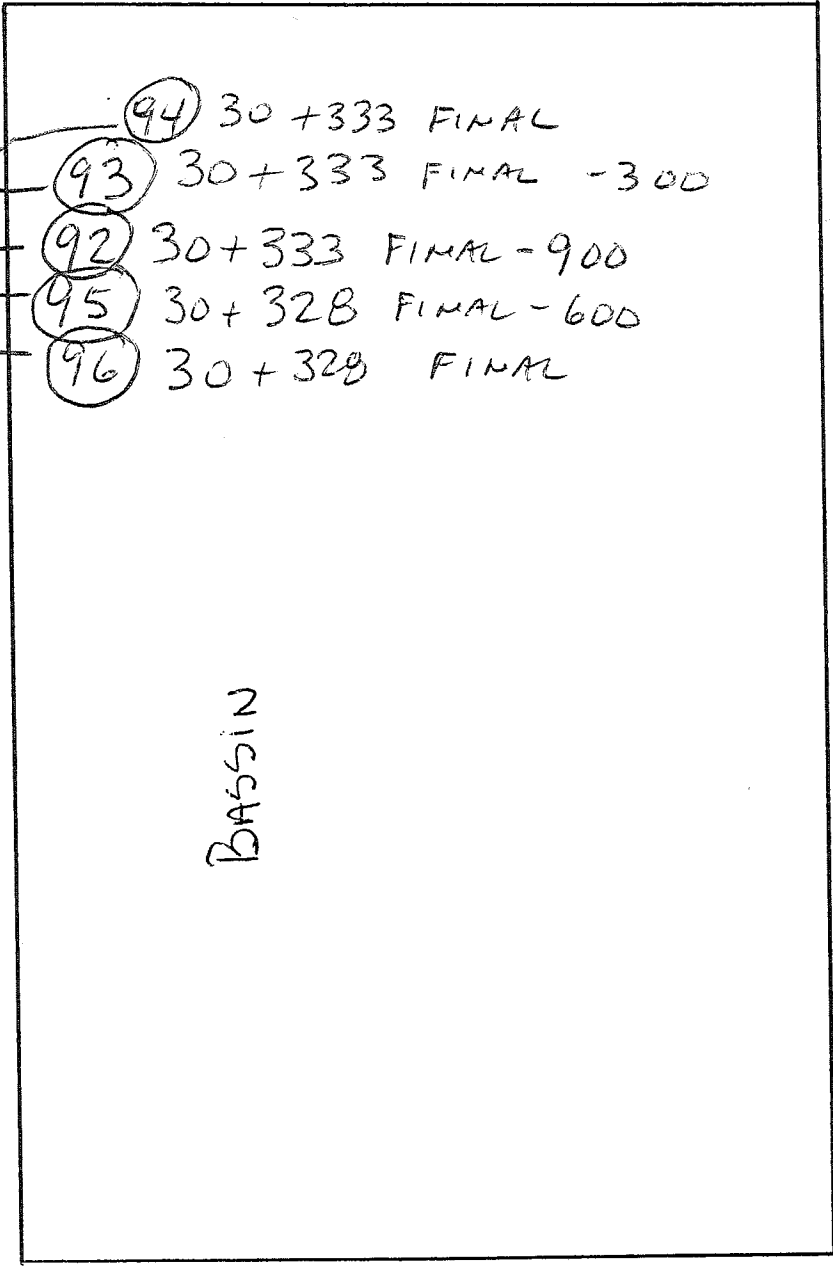 94 30 +333 FINAL
93 30+333 FINAL -300
92 30+333 FINAL-900
95 30+328 FINAL-600
96 30+328 FINAL
BASSIN